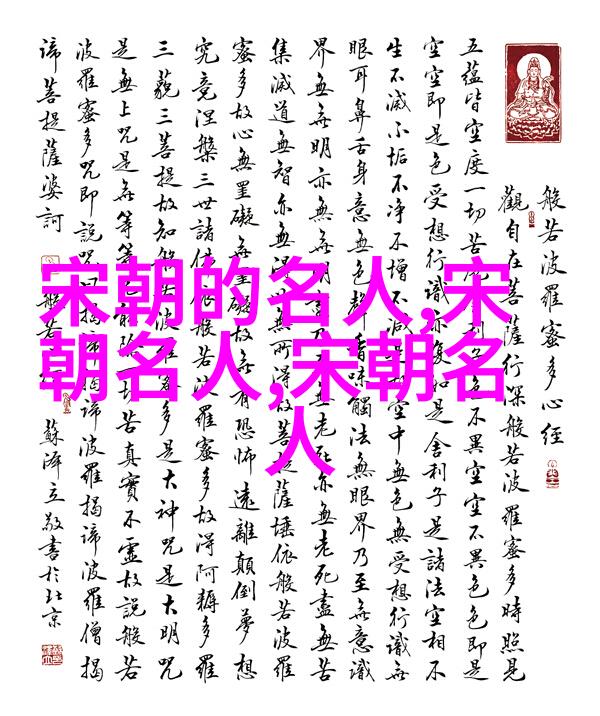 宋朝的名人,宋
朝名人,宋朝名
人
般若波羅蜜多心經
觀自在菩薩行深般若波羅蜜多時照見
五蘊皆空度一切苦利子色不異空空不異色色即是
空空即是色受想行識亦復如是舍利子是諸法空相不
生不滅不垢不净不增不減空中無色無受想行識無
眼耳鼻舌身意無色聲香味觸法無眼界乃至無意識
界無無明亦無無明乃無老死亦無老死盡無苦
集滅道無智亦無得無所得故菩提薩埵依般若波羅
蜜多故心無罣礙無罣礙故無有恐怖遠離顛倒夢想
究竟涅槃三世諸佛依般若波羅蜜多故得阿耨多羅
三藐三菩提故知般若波羅蜜多是大神咒是大明咒
是無上咒是無等等咒能除一切苦真實不虛故說般若
波羅蜜多咒即說咒曰揭諦揭諦波羅揭諦波羅僧揭
諦菩提薩婆訶 般若心經 蘇澤立敬書於北京